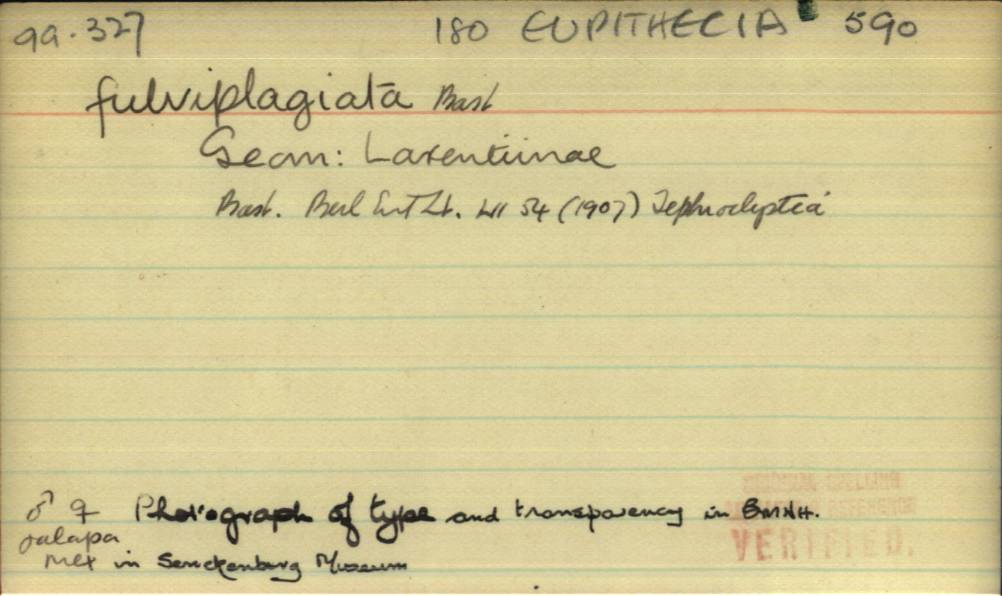 99.327 180 EUPITHECIA 590
fulviplagiata Bast
Geom: Larentiinae
Bast. Berl Ent Zt. LII 54 (1907) Tephroclystia
♂ ♀ Photograph of type and transparency in BMNH.
Jalapa
Mex in Senckenburg Museum
ORIGINAL SPELLING
REFERENCE
VERIFIED.